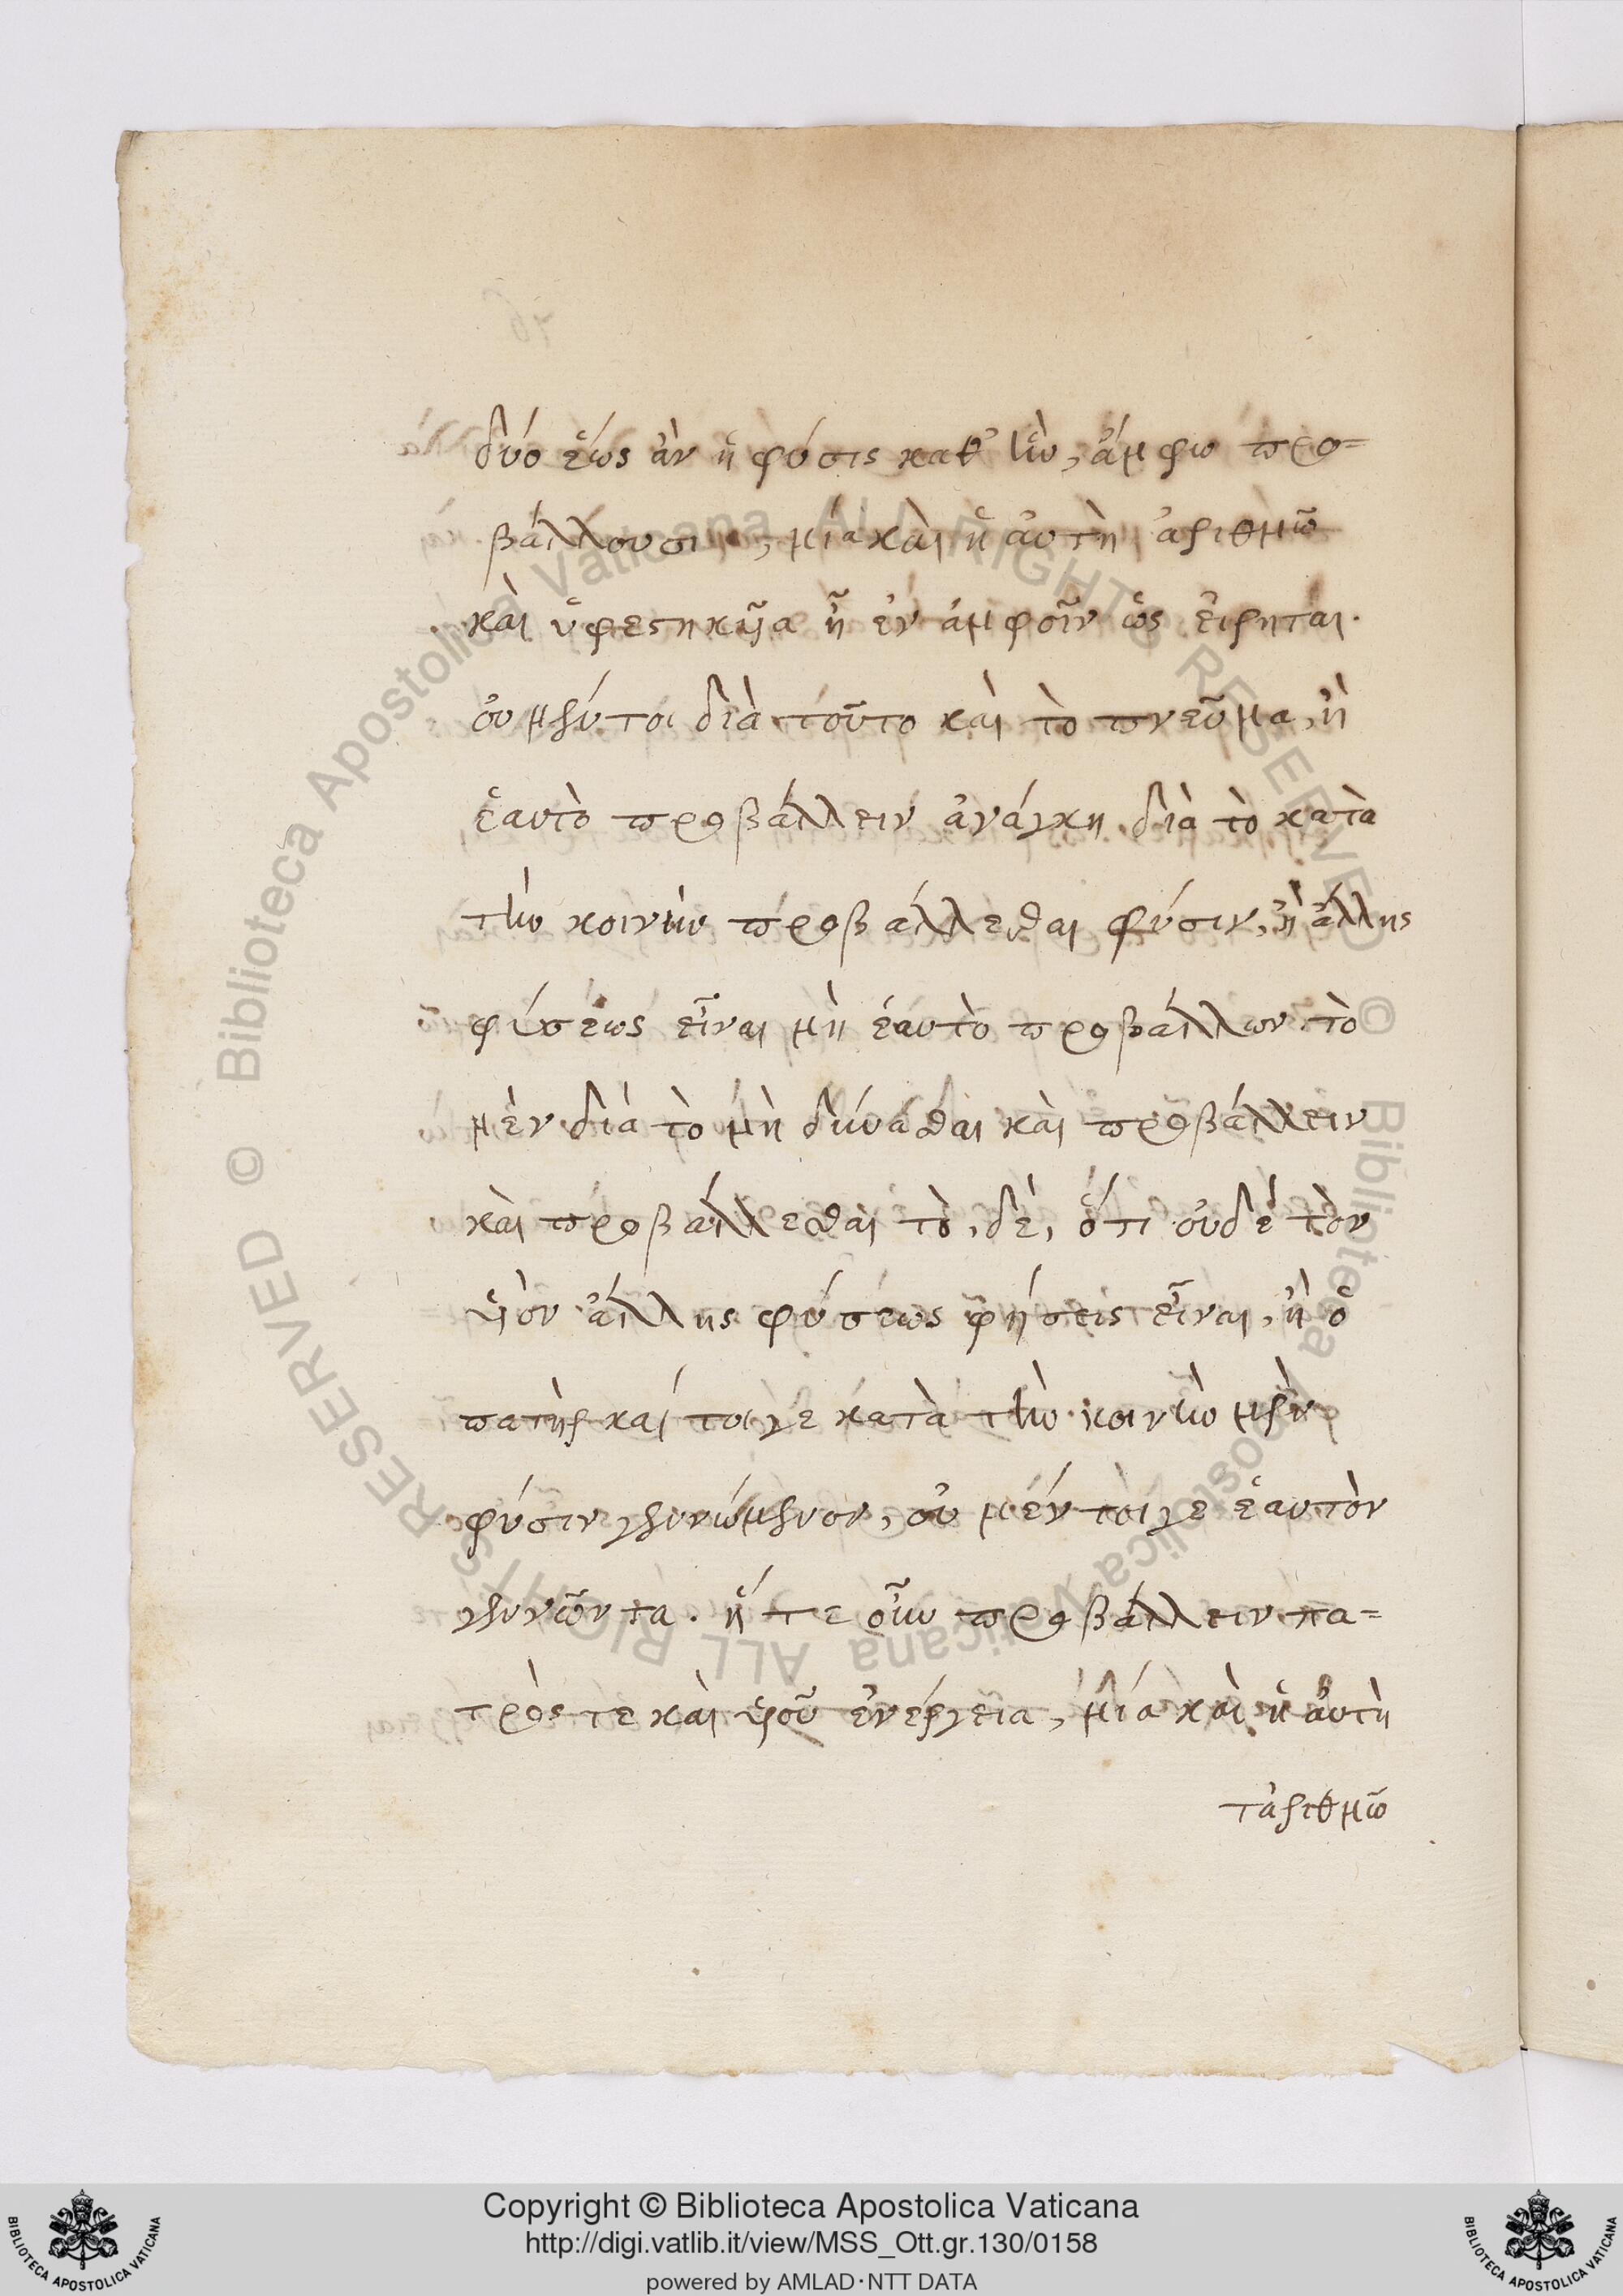 δύο ἕως ἂν ἡ φύσις καθ' ἣν, ἄμφω προ=
βάλλουσι, μία καὶ ἡ αὐτὴ ἀριθμῶ
καὶ ὑφεστηκῆα ἢ ἐν ἀμφοῖν ὡς εἴρηται.
οὐ μέντοι διὰ τοῦτο καὶ τὸ πνεῦμα, ἢ
ἑαυτὸ προβάλλειν ἀνάγκη διὰ τὸ κατὰ
τὴν κοινὴν προβάλλεσθαι φύσιν, ἢ ἄλλης
φύσεως εἶναι μὴ ἑαυτὸ προβάλλων. τὸ
μὲν διὰ τὸ μὴ δύνασθαι καὶ προβάλλειν
καὶ προβάλλεσθαι τὸ, δὲ, ὅτι οὐδὲ τὸν
υἱὸν ἄλλης φύσεως φήσεις εἶναι, ἢ ὁ
πατὴρ καί τοι γε κατὰ τὴν κοινὴν μὲν
φύσιν γεννώμενον, οὐ μέν τοι γε ἑαυτὸν
γεννῶντα. ἥ τε οὖν προβάλλειν πα=
τρός τε καὶ υἱοῦ ἐνέργεια, μία καὶ ἡ αὐτὴ
τἀριθμῶ
Copyright © Biblioteca Apostolica Vaticana
http://digi.vatlib.it/view/MSS_Ott.gr.130/0158
powered by AMLAD·NTT DATA
BIBLIOTECA APOSTOLICA VATICANA
BIBLIOTECA APOSTOLICA VATICANA
© Biblioteca Apostolica Vaticana ALL RIGHTS RESERVED © Biblioteca Apostolica Vaticana ALL RIGHTS RESERVED